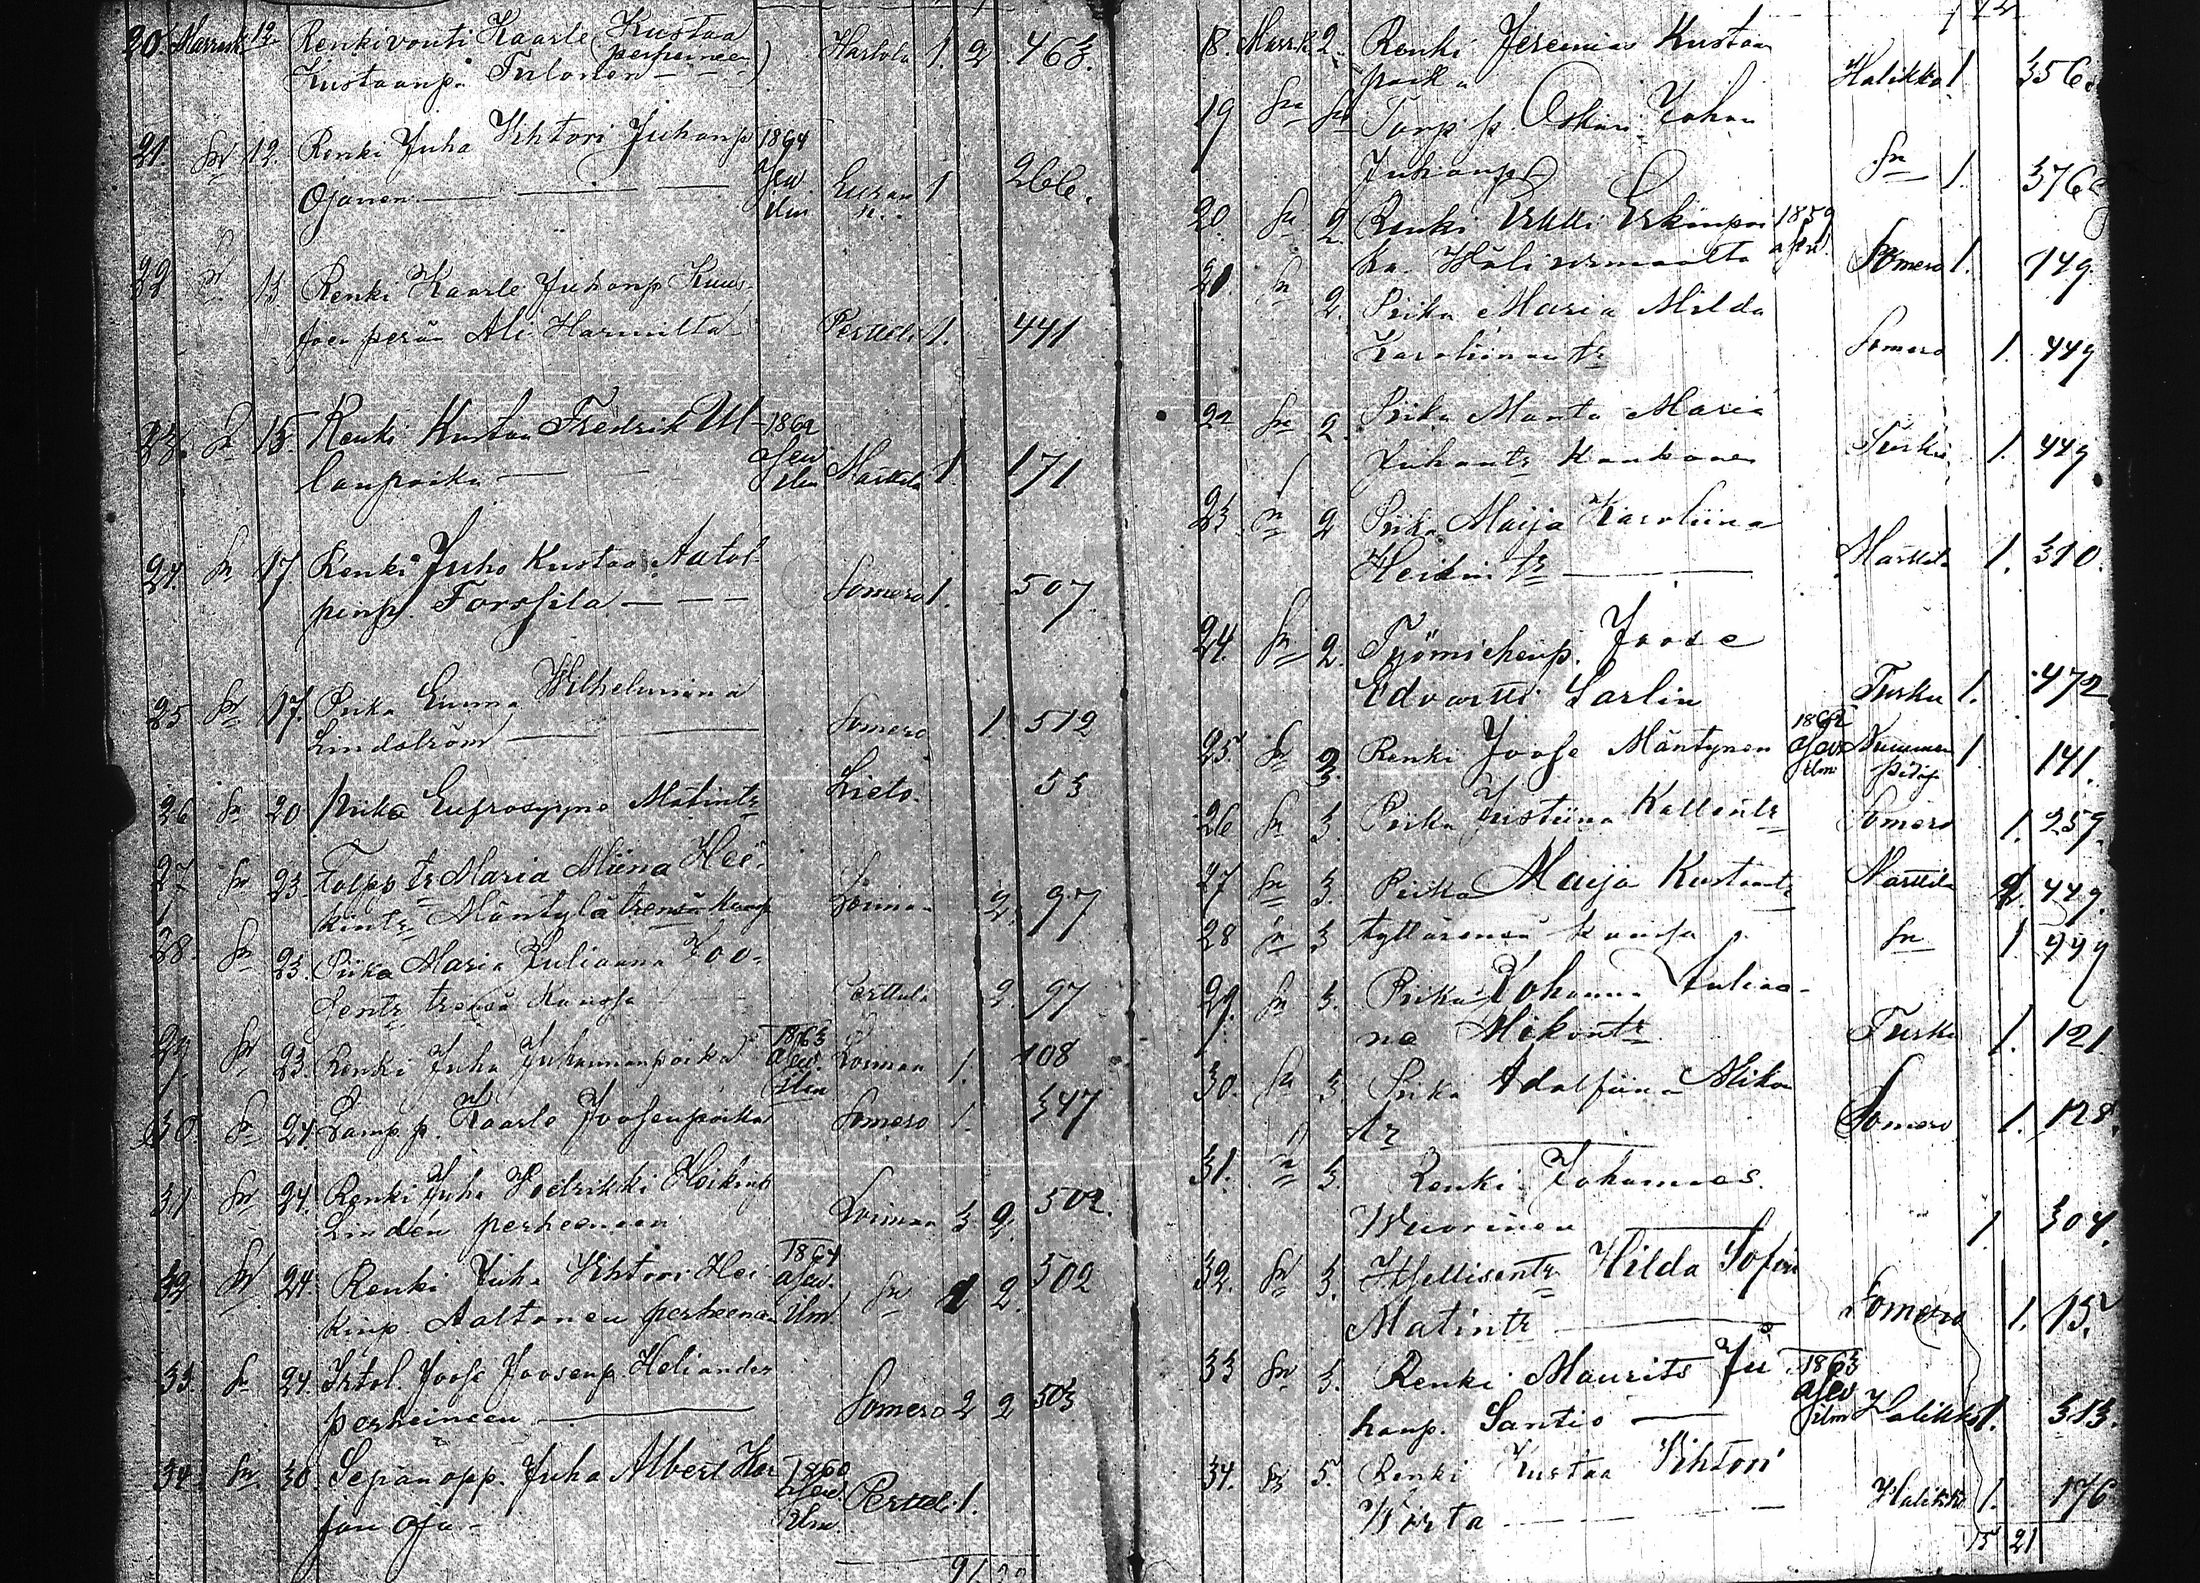 20 Marrask. 12 Renkivouti Kaarle Kustaa
Kustaanp. Tulonen perheineen Hartola 1. 2 463.
21. Sn 12. Renki Juha Vihtori Juhanp 1864
Ojanen asev. ilm 1 266.
22 Sn 13 Renki Kaarle Juhanp Kuus-
joen perän Ali Harmilta Pertteli 1. 441
23. Sn 15. Renki Kustaa Fredrik Ul- 1862
lanpoika asev ilm Marttila 1. 171
24. Sn 17 Renki Juho Kustaa Aatol-
penp. Forssila Somero 1. 507
25 Sn 17. Piika Emma Wilhelmiina
Lindström Somero 1. 512
26 Sn 20 Piika Eufrosyyne Matintr Lieto. 53
27 Sn 23. Torpp tr Maria Miina Hei-
kintr Mäntylä trensä kanssa Loimaa 2. 97
28. Sn 23. Piika Maria Juliaana Joo-
sentr trensä kanssa Perttula 2. 97
29. Sn 23. Renki Juha Juhananpoika 1863 asev. ilm Loimaa 1. 108
30. Sn 24. Lamp.p. Kaarle Joosenpoika Somero 1. 347
31 Sn 24. Renki Juha Fredrikki Heikinp
Lindén perheeneen Loimaa 3 2. 502.
32 Sn 24. Renki Juha Vihtori Hei 1864
kinp. Aaltonen perheenen asev. ilm. Sn 1 2. 502
33. Sn 24. Irtol. Joose Joosenp. Heliander
perheineen Somero 2 2 503
34. Sn. 30. Sepän opp. Juha Albert Kar 1860
jan oja asev. ilm. Perttel. 1.
18. Marrk 2. Renki Jeremias Kustaa
poika Halikko 1. 356.
19 Sn Sn Torp p. Oskari Johan
Juhanp Sn 1. 376
20. Sn 2. Renki Erkki Erkinpoi 1859
ka asev. Somero 1. 149.
21. Sn 2. Piika Maria Milda
Karoliinan tr Somero 1. 449
22 Sn 2. Piika Manta Maria
Juhantr Turku 1. 449
23. Sn 2 Piika Maija Karoliina
Heikin tr Marttila 1. 310.
24. Sn 2. Työmiehenp. Joose
Edvartti Sarlin Turku 1. 472
25. Sn 3. Renki Joose Mäntynen 1862 asev. ilm Nummen pitäj 1. 141.
26 Sn 3. Piika Justiina Kallentr Somero 1. 259.
27 Sn 3. Piika Maija Kustaantr Marttila 1. 449.
28 Sn 3 tyttärensä kanssa Sn 1. 449
29. Sn 3. Piika Johanna Julia-
na Mikontr Turku 1. 121
30. Sn 3. Piika Adolfiina Mikon
tr Somero 1. 128.
31. Sn 3. Renki Johannes
Wuorinen 1 304.
32. Sn 3. Itsellisentr Hilda Sofia
Matintr Somero 1. 15.
33 Sn 3. Renki Maurits Ju 1863
hanp. Santio asev ilm Halikko 1. 313.
34. Sn 5. Renki Kustaa Vihtori
Wirta Halikko 1. 176
15 21